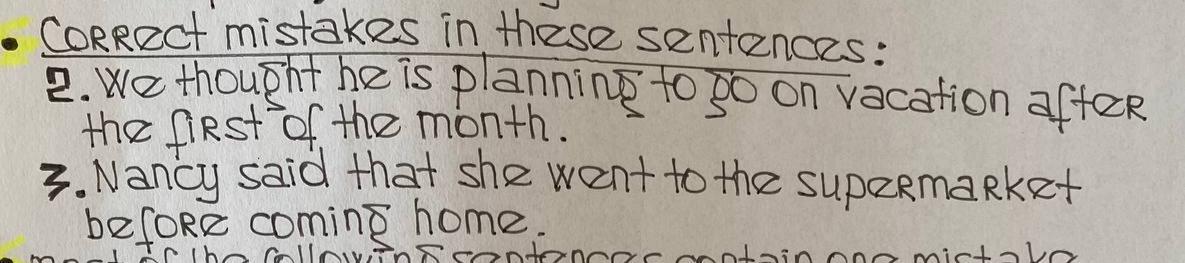 • Correct mistakes in these sentences:
2. We thought he is planning to go on vacation after
the first of the month.
3. Nancy said that she went to the supermarket
before coming home.
most of the following sentences contain one mistake